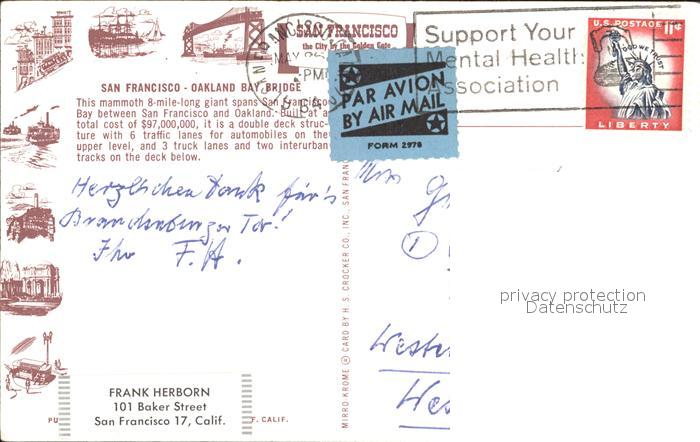 SAN FRANCISCO
the City by the Golden Gate
SAN FRANCISCO
MAY
PM
Support Your
Mental Health
Association
U.S. POSTAGE 11¢
IN GOD WE TRUST
LIBERTY
PAR AVION
BY AIR MAIL
FORM 2978
SAN FRANCISCO - OAKLAND BAY BRIDGE
This mammoth 8-mile-long giant spans San Francisco
Bay between San Francisco and Oakland. Built at a
total cost of $97,000,000, it is a double deck struc-
ture with 6 traffic lanes for automobiles on the
upper level, and 3 truck lanes and two interurban
tracks on the deck below.
Herzlichen Dank für's
Brandenburger Tor!
Ihr F.H.
MIRRO-KROME ® CARD BY H. S. CROCKER CO., INC. SAN FRAN
Weste
Wes
privacy protection
Datenschutz
FRANK HERBORN
101 Baker Street
San Francisco 17, Calif.
PU
F. CALIF.